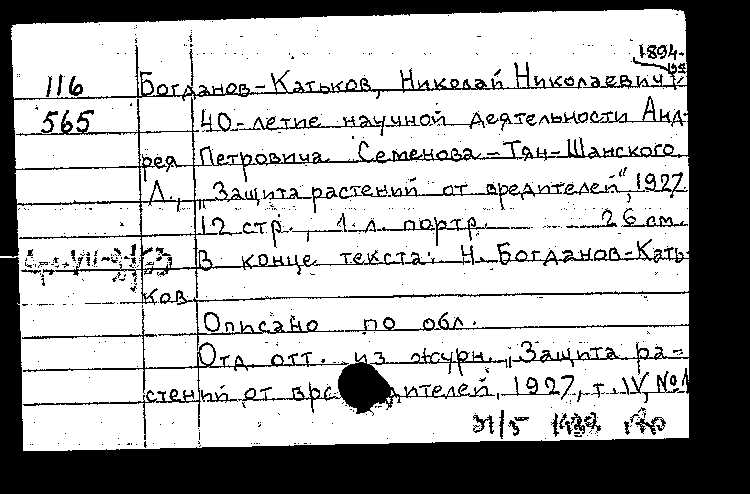 1894-
116 Богданов-Катьков, Николай Николаевич
565 40-летие научной деятельности Анд-
рея Петровича Семенова-Тян-Шанского.
Л., „Защита растений от вредителей", 1927
12 стр., 1 л. портр. 26 см.
В конце текста: Н. Богданов-Кать-
ков.
Описано по обл.
Отд. отт. из журн. „Защита ра-
стений от вредителей, 1927, т. IV, №1
31/5